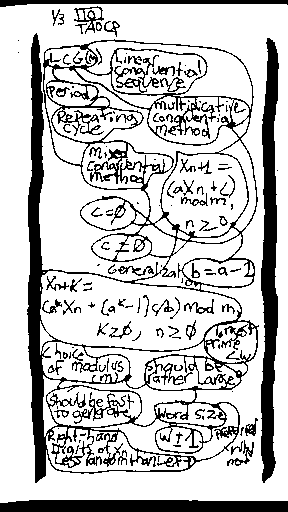 1/3 110
TAOCP
LCG(m)
Linear
congruential
sequence
Period
Repeating
cycle
multiplicative
congruential
method
mixed
congruential
method
Xn+1 =
(aXn + c)
mod m,
n ≥ 0
c = 0
c ≠ 0
Generalization
b = a - 1
Xn+k =
(a^k Xn + (a^k - 1) c/b) mod m,
k ≥ 0, n ≥ 0
largest
prime
< w
Choice
of modulus
(m)
should be
rather large
Should be fast
to generate
Word size
w ± 1
Right-hand
Digits of Xn
Less random than Left